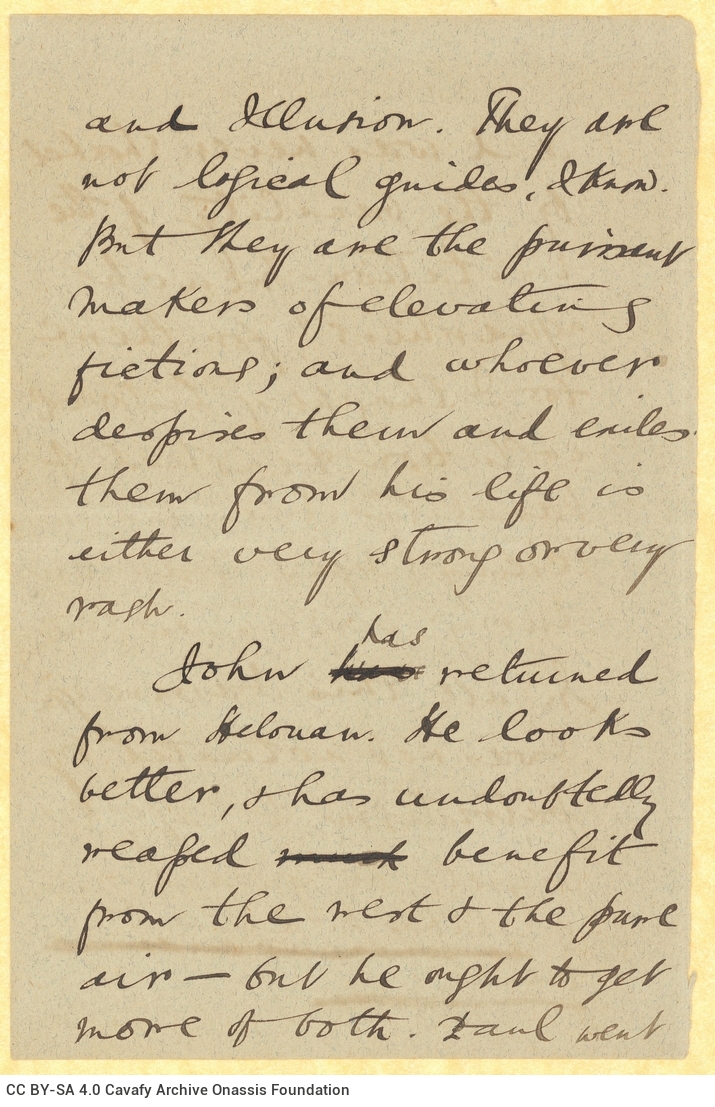 and Illusion. They are
not logical guides, I know.
But they are the puissant
makers of elevating
fictions; and whoever
despises them and exiles
them from his life is
either very strong or very
rash.
has
John was returned
from Helouan. He looks
better, & has undoubtedly
reaped much benefit
from the rest & the pure
air — but he ought to get
more of both. Paul went
CC BY-SA 4.0 Cavafy Archive Onassis Foundation